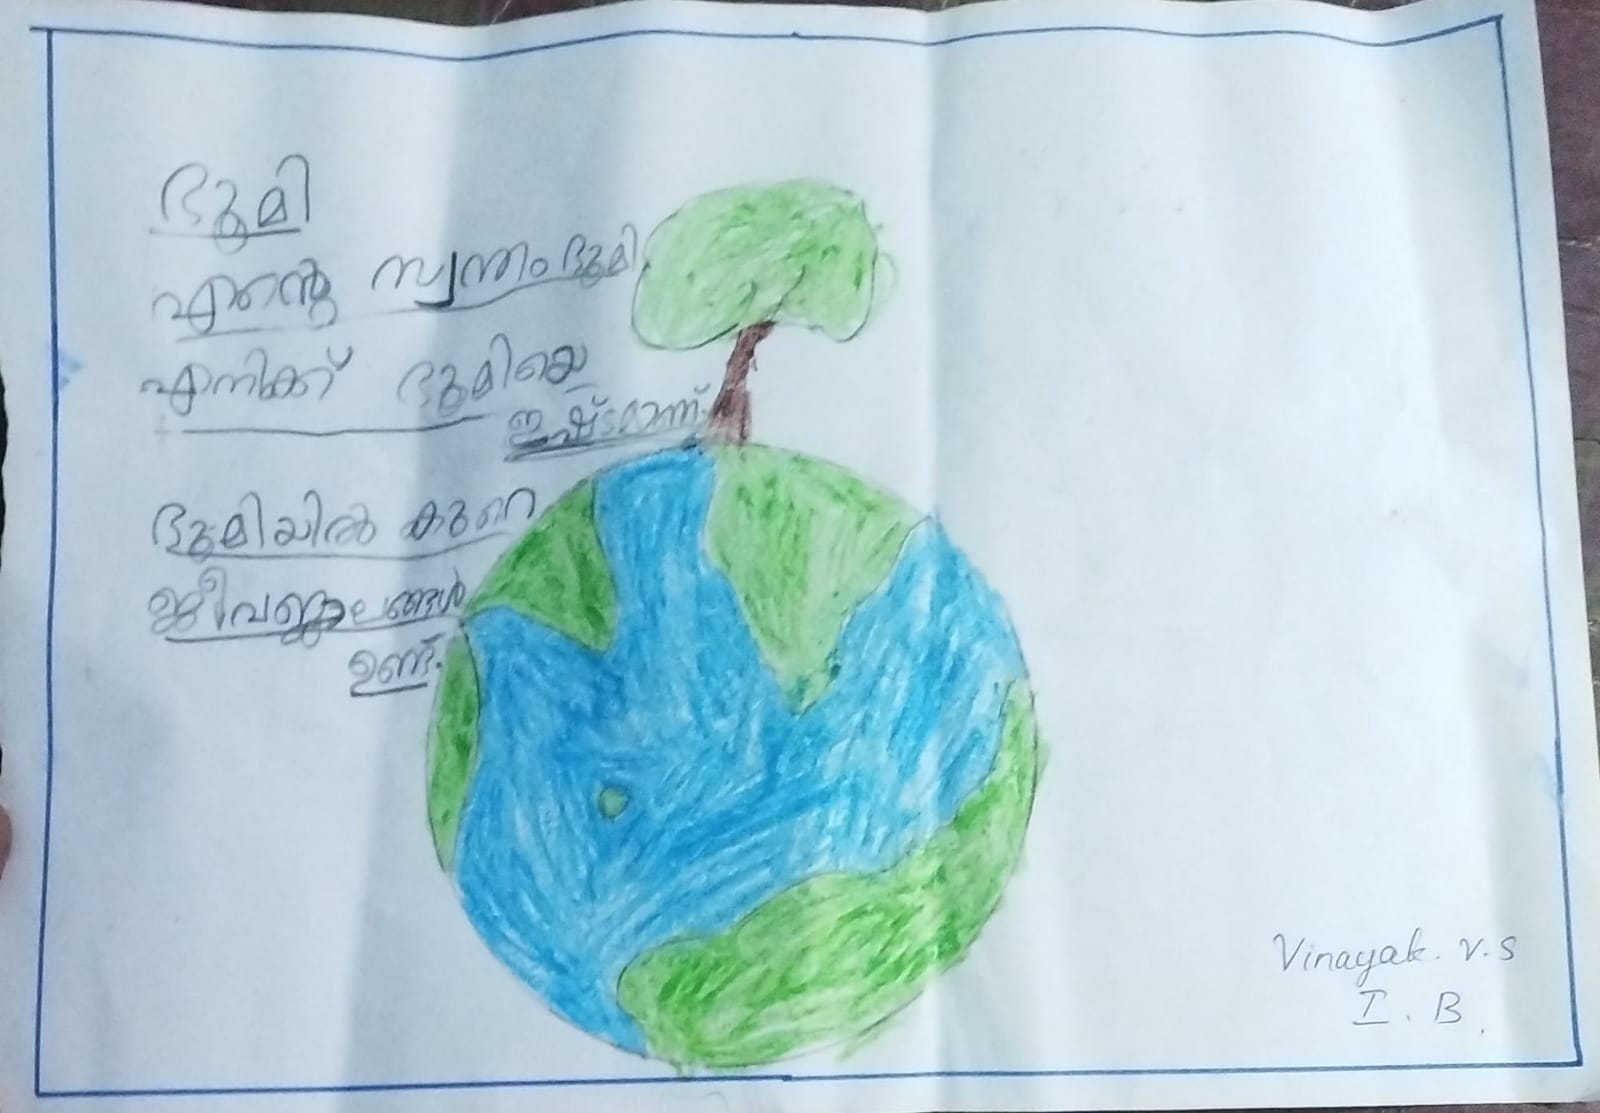 ഭൂമി
എന്റെ സ്വന്തം ഭൂമി
എനിക്ക് ഭൂമിയെ
ഇഷ്ടമാണ്.
ഭൂമിയിൽ കുറെ
ഉണ്ട്.
Vinayak. V.S
I. B.